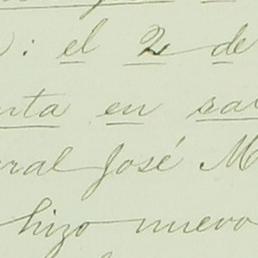 : el 2 de
nta en sa
ral José M
hizo nuevo